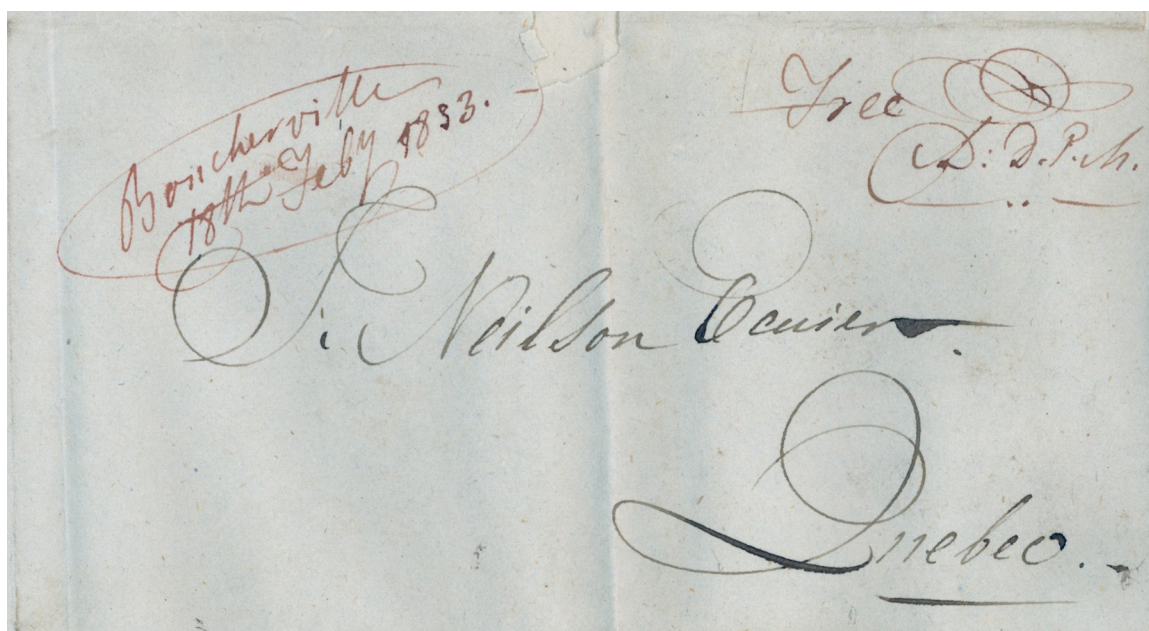 Boucherville
18th Feby 1833.
Free
D: D.P.M.
J. Neilson Ecuier.
Quebec.